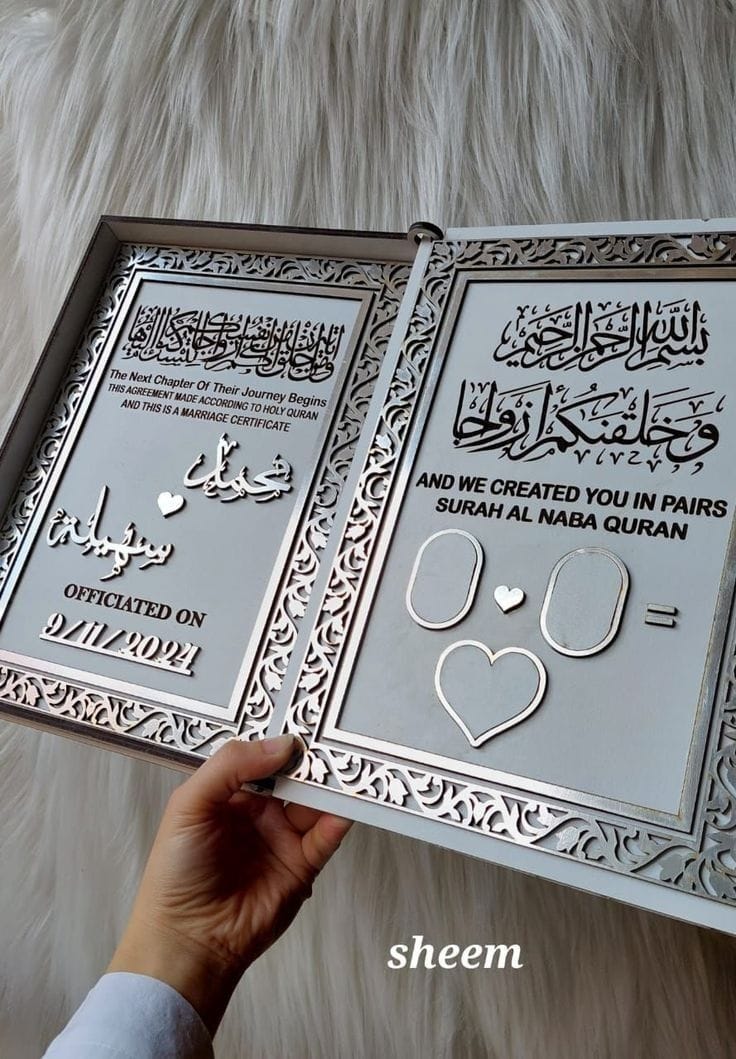 The Next Chapter Of Their Journey Begins
THIS AGREEMENT MADE ACCORDING TO HOLY QURAN
AND THIS IS A MARRIAGE CERTIFICATE
محمد
سهيلة
OFFICIATED ON
9/11/2024
بسم الله الرحمن الرحيم
وخلقنكم ازواجا
AND WE CREATED YOU IN PAIRS
SURAH AL NABA QURAN
=
sheem